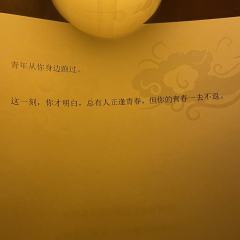 青年从你身边跑过。
这一刻，你才明白，总有人正逢青春，但你的青春一去不返。